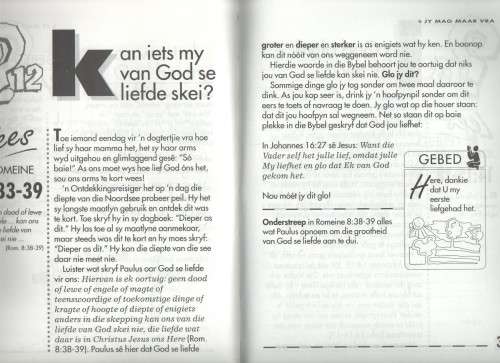 12
ees
OMEINE
33-39
n dood of lewe
... kan ons
e van God
ei nie ...
(Rom. 8:38-39)
kan iets my
van God se
liefde skei?
Toe iemand eendag vir 'n dogtertjie vra hoe
lief sy haar mamma het, het sy haar arms
wyd uitgehou en glimlaggend gesê: "Só
baie!" As ons moet wys hoe lief God óns het,
sou ons arms te kort wees!
'n Ontdekkingsreisiger het op 'n dag die
diepte van die Noordsee probeer peil. Hy het
sy langste maatlyn gebruik en ontdek dit was
te kort. Toe skryf hy in sy dagboek: "Dieper as
dit." Hy las toe al sy maatlyne aanmekaar,
maar steeds was dit te kort en hy moes skryf:
"Dieper as dit." Hy kan die diepte van die see
daar nie meet nie.
Luister wat skryf Paulus oor God se liefde
vir ons: Hiervan is ek oortuig: geen dood
of lewe of engele of magte of
teenswoordige of toekomstige dinge of
kragte of hoogte of diepte of enigiets
anders in die skepping kan ons van die
liefde van God skei nie, die liefde wat
daar is in Christus Jesus ons Here (Rom.
8:38-39). Paulus sê hier dat God se liefde
JY MAG MAAR VRA
groter en dieper en sterker is as enigiets wat hy ken. En boonop
kan dit nóóit van ons weggeneem word nie.
Hierdie woorde in die Bybel behoort jou te oortuig dat niks
jou van God se liefde kan skei nie. Glo jy dit?
Sommige dinge glo jy tog sonder om twee maal daaroor te
dink. As jou kop seer is, drink jy 'n hoofpynpil sonder om dit
eers te toets of navraag te doen. Jy glo wat op die houer staan:
dat dit jou hoofpyn sal wegneem. Net so staan dit op baie
plekke in die Bybel geskryf dat God jou liefhet:
In Johannes 16:27 sê Jesus: Want die
Vader self het julle lief, omdat julle
My liefhet en glo dat Ek van God
gekom het.
Nou móét jy dit glo!
Onderstreep in Romeine 8:38-39 alles
wat Paulus opnoem om die grootheid
van God se liefde aan te dui.
GEBED
Here, dankie
dat U my
eerste
liefgehad het.